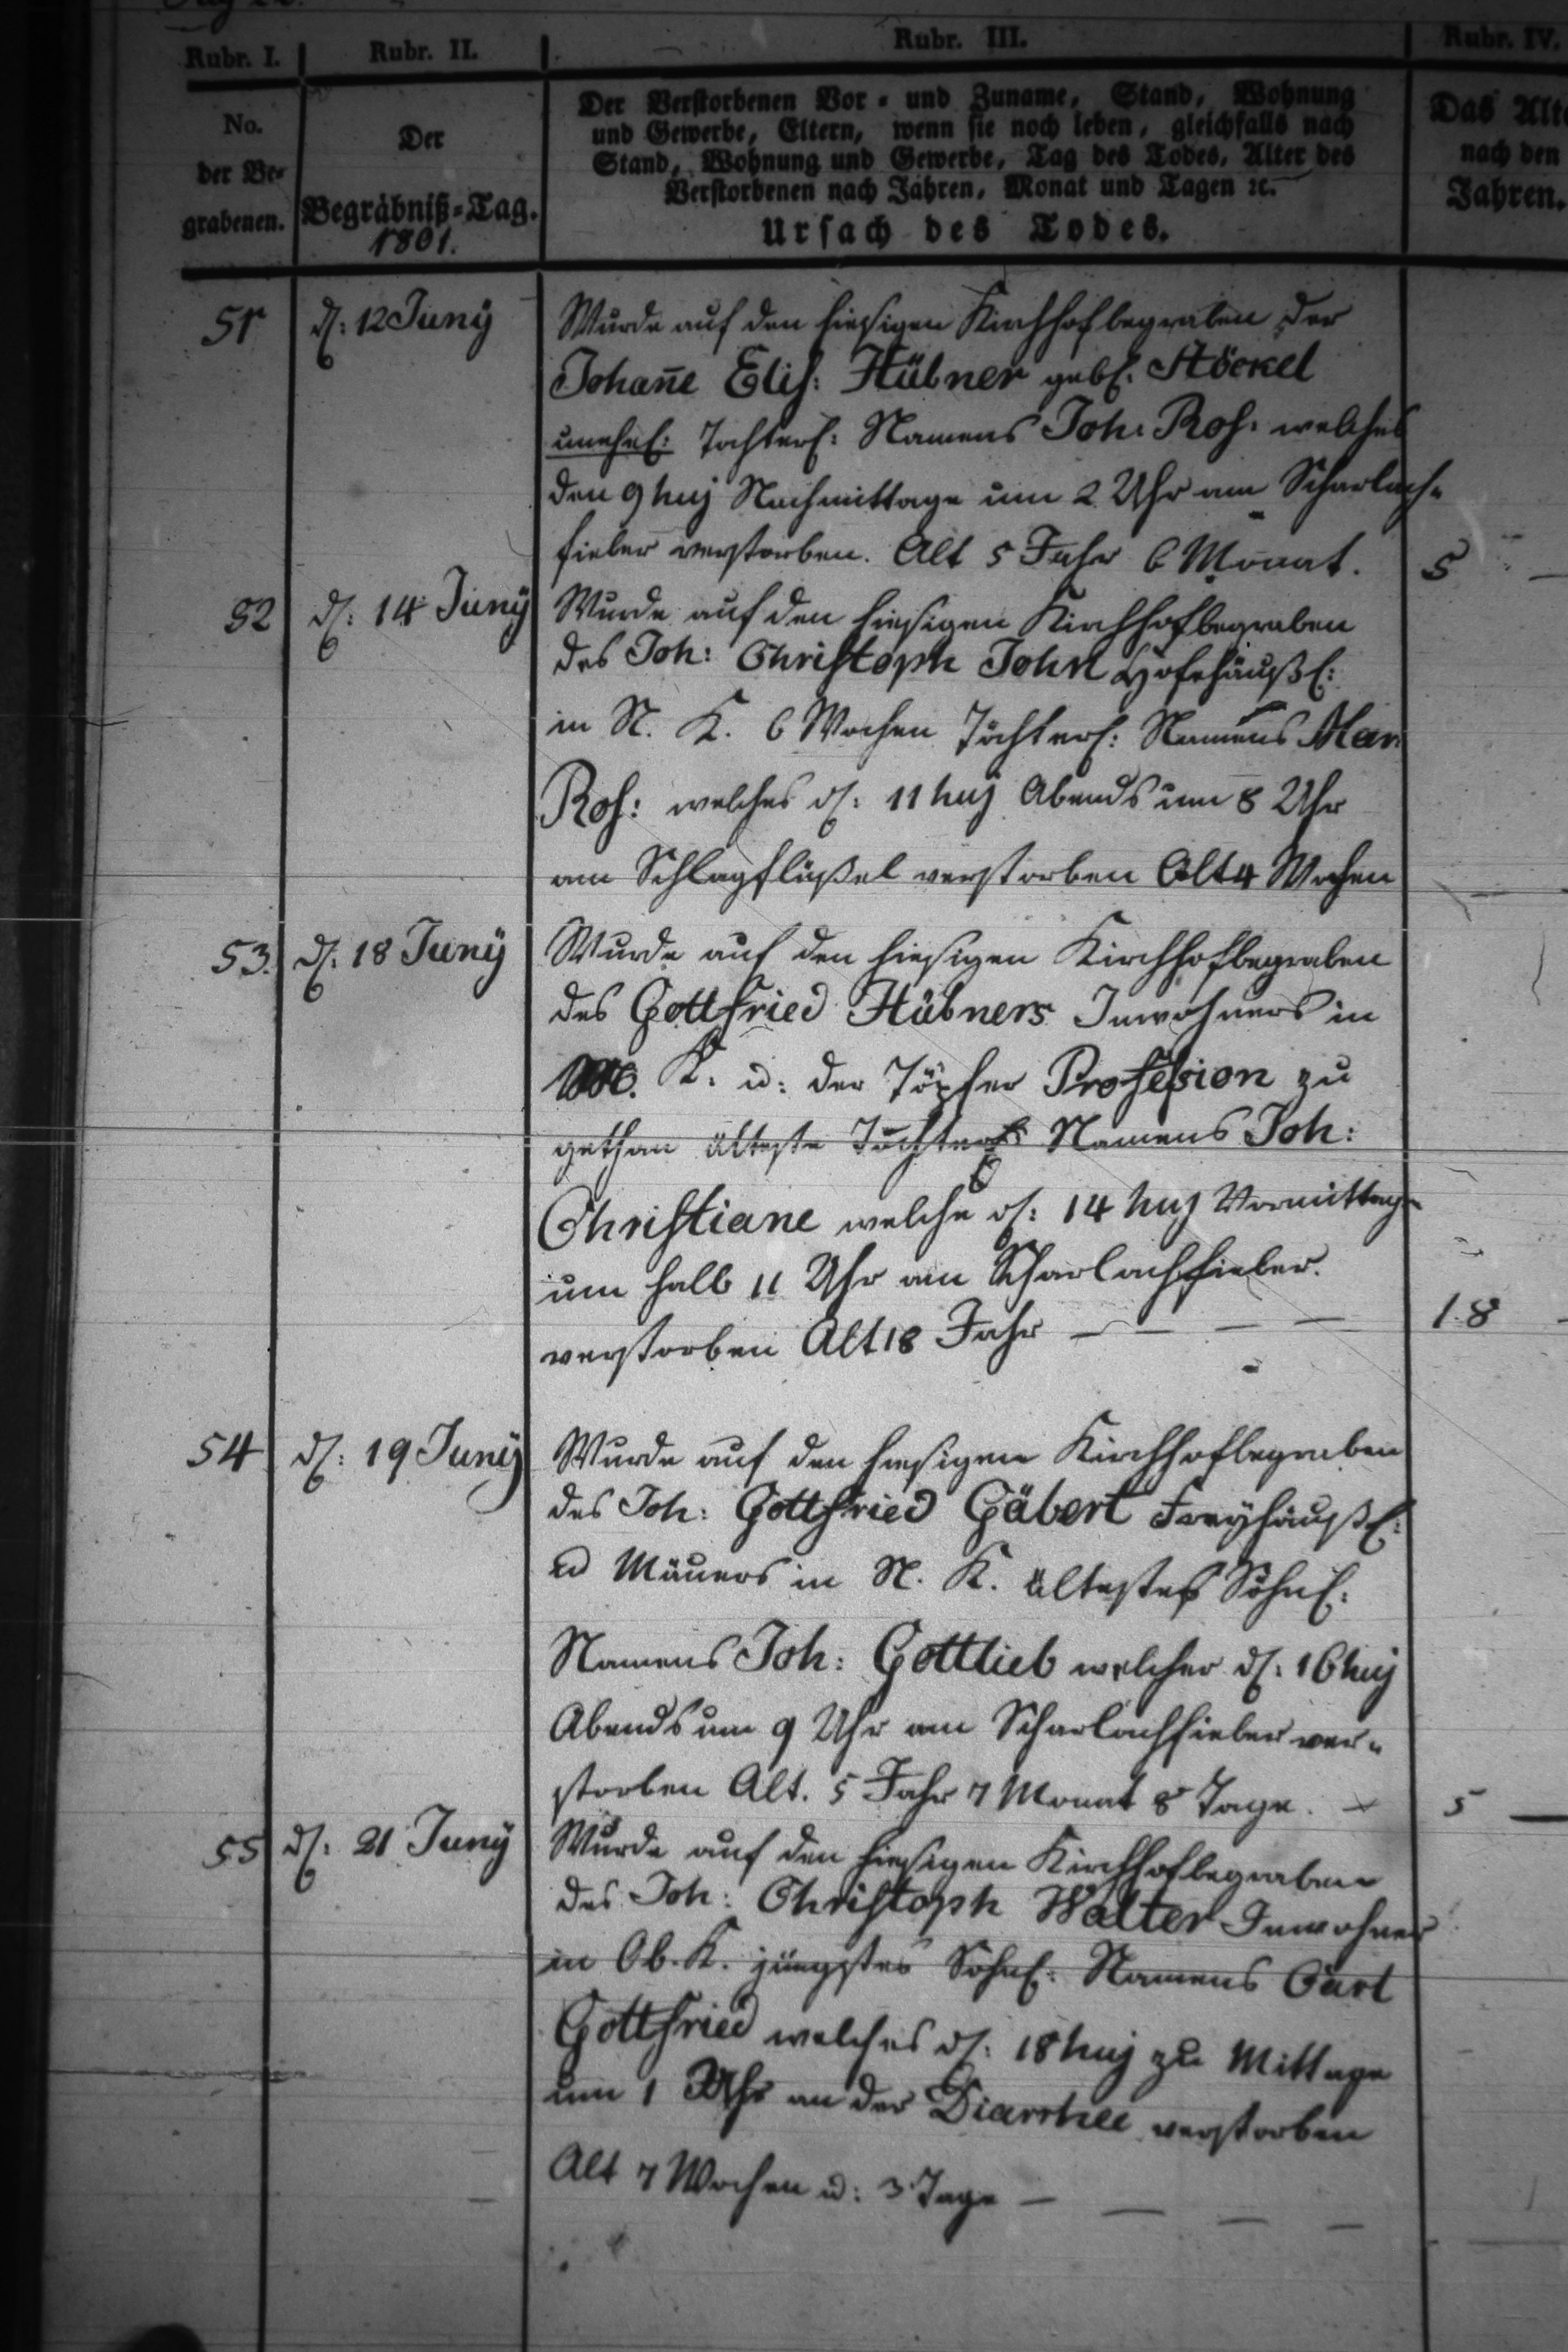 Rubr. I.
Rubr. II.
Rubr. III.
Rubr. IV.
No.
der Be-
grabenen.
Der
Begräbniß-Tag.
1801.
Der Verstorbenen Vor- und Zuname, Stand, Wohnung
und Gewerbe, Eltern, wenn sie noch leben, gleichfalls nach
Stand, Wohnung und Gewerbe, Tag des Todes, Alter des
Verstorbenen nach Jahren, Monat und Tagen ꝛc.
Ursach des Todes.
Das Alte
nach den
Jahren.
51 d: 12 Juny Wurde auf den hiesigen Kirchhof begraben der
Johañe Elis: Hübner gebl: Stöckel
unehel: Tochterl: Namens Joh: Ros: welches
den 9 huj Nachmittage um 2 Uhr am Scharlach-
fieber verstorben. Alt 5 Jahr 6 Monat. 5
52 d: 14 Juny Wurde auf den hiesigen Kirchhof begraben
des Joh: Christoph John Hofehäußl:
in N. K. 6 Wochen Töchterl: Namens Mar:
Ros: welches d: 11 huj Abends um 8 Uhr
am Schlagflüßel verstorben Alt 4 Wochen
53. d: 18 Juny Wurde auf den hiesigen Kirchhof begraben
des Gottfried Hübners Inwohners in
K: u: der Töpfer Profeßion zu
gethan älteste Tochter Namens Joh:
Christiane welche d: 14 huj Vormittag
um halb 11 Uhr am Scharlachfieber.
verstorben Alt 18 Jahr — — — — 18
54 d: 19 Juny Wurde auf den hiesigen Kirchhof begraben
des Joh: Gottfried Gäbert Freyhäußl:
u Mäuers in N. K. ältestes Söhnl:
Namens Joh: Gottlieb welcher d: 16 huj
Abends um 9 Uhr am Scharlachfieber ver-
storben Alt. 5 Jahr 7 Monat 8 Tage. — 5 —
55 d: 21 Juny Wurde auf den hiesigen Kirchhof begraben
des Joh: Christoph Walter Inwohner
in Ob. K. jüngstes Söhnl: Namens Carl
Gottfried welches d: 18 huj zu Mittage
um 1 Uhr an der Diarrhee verstorben
Alt 7 Wochen u: 3 Tage — — — —